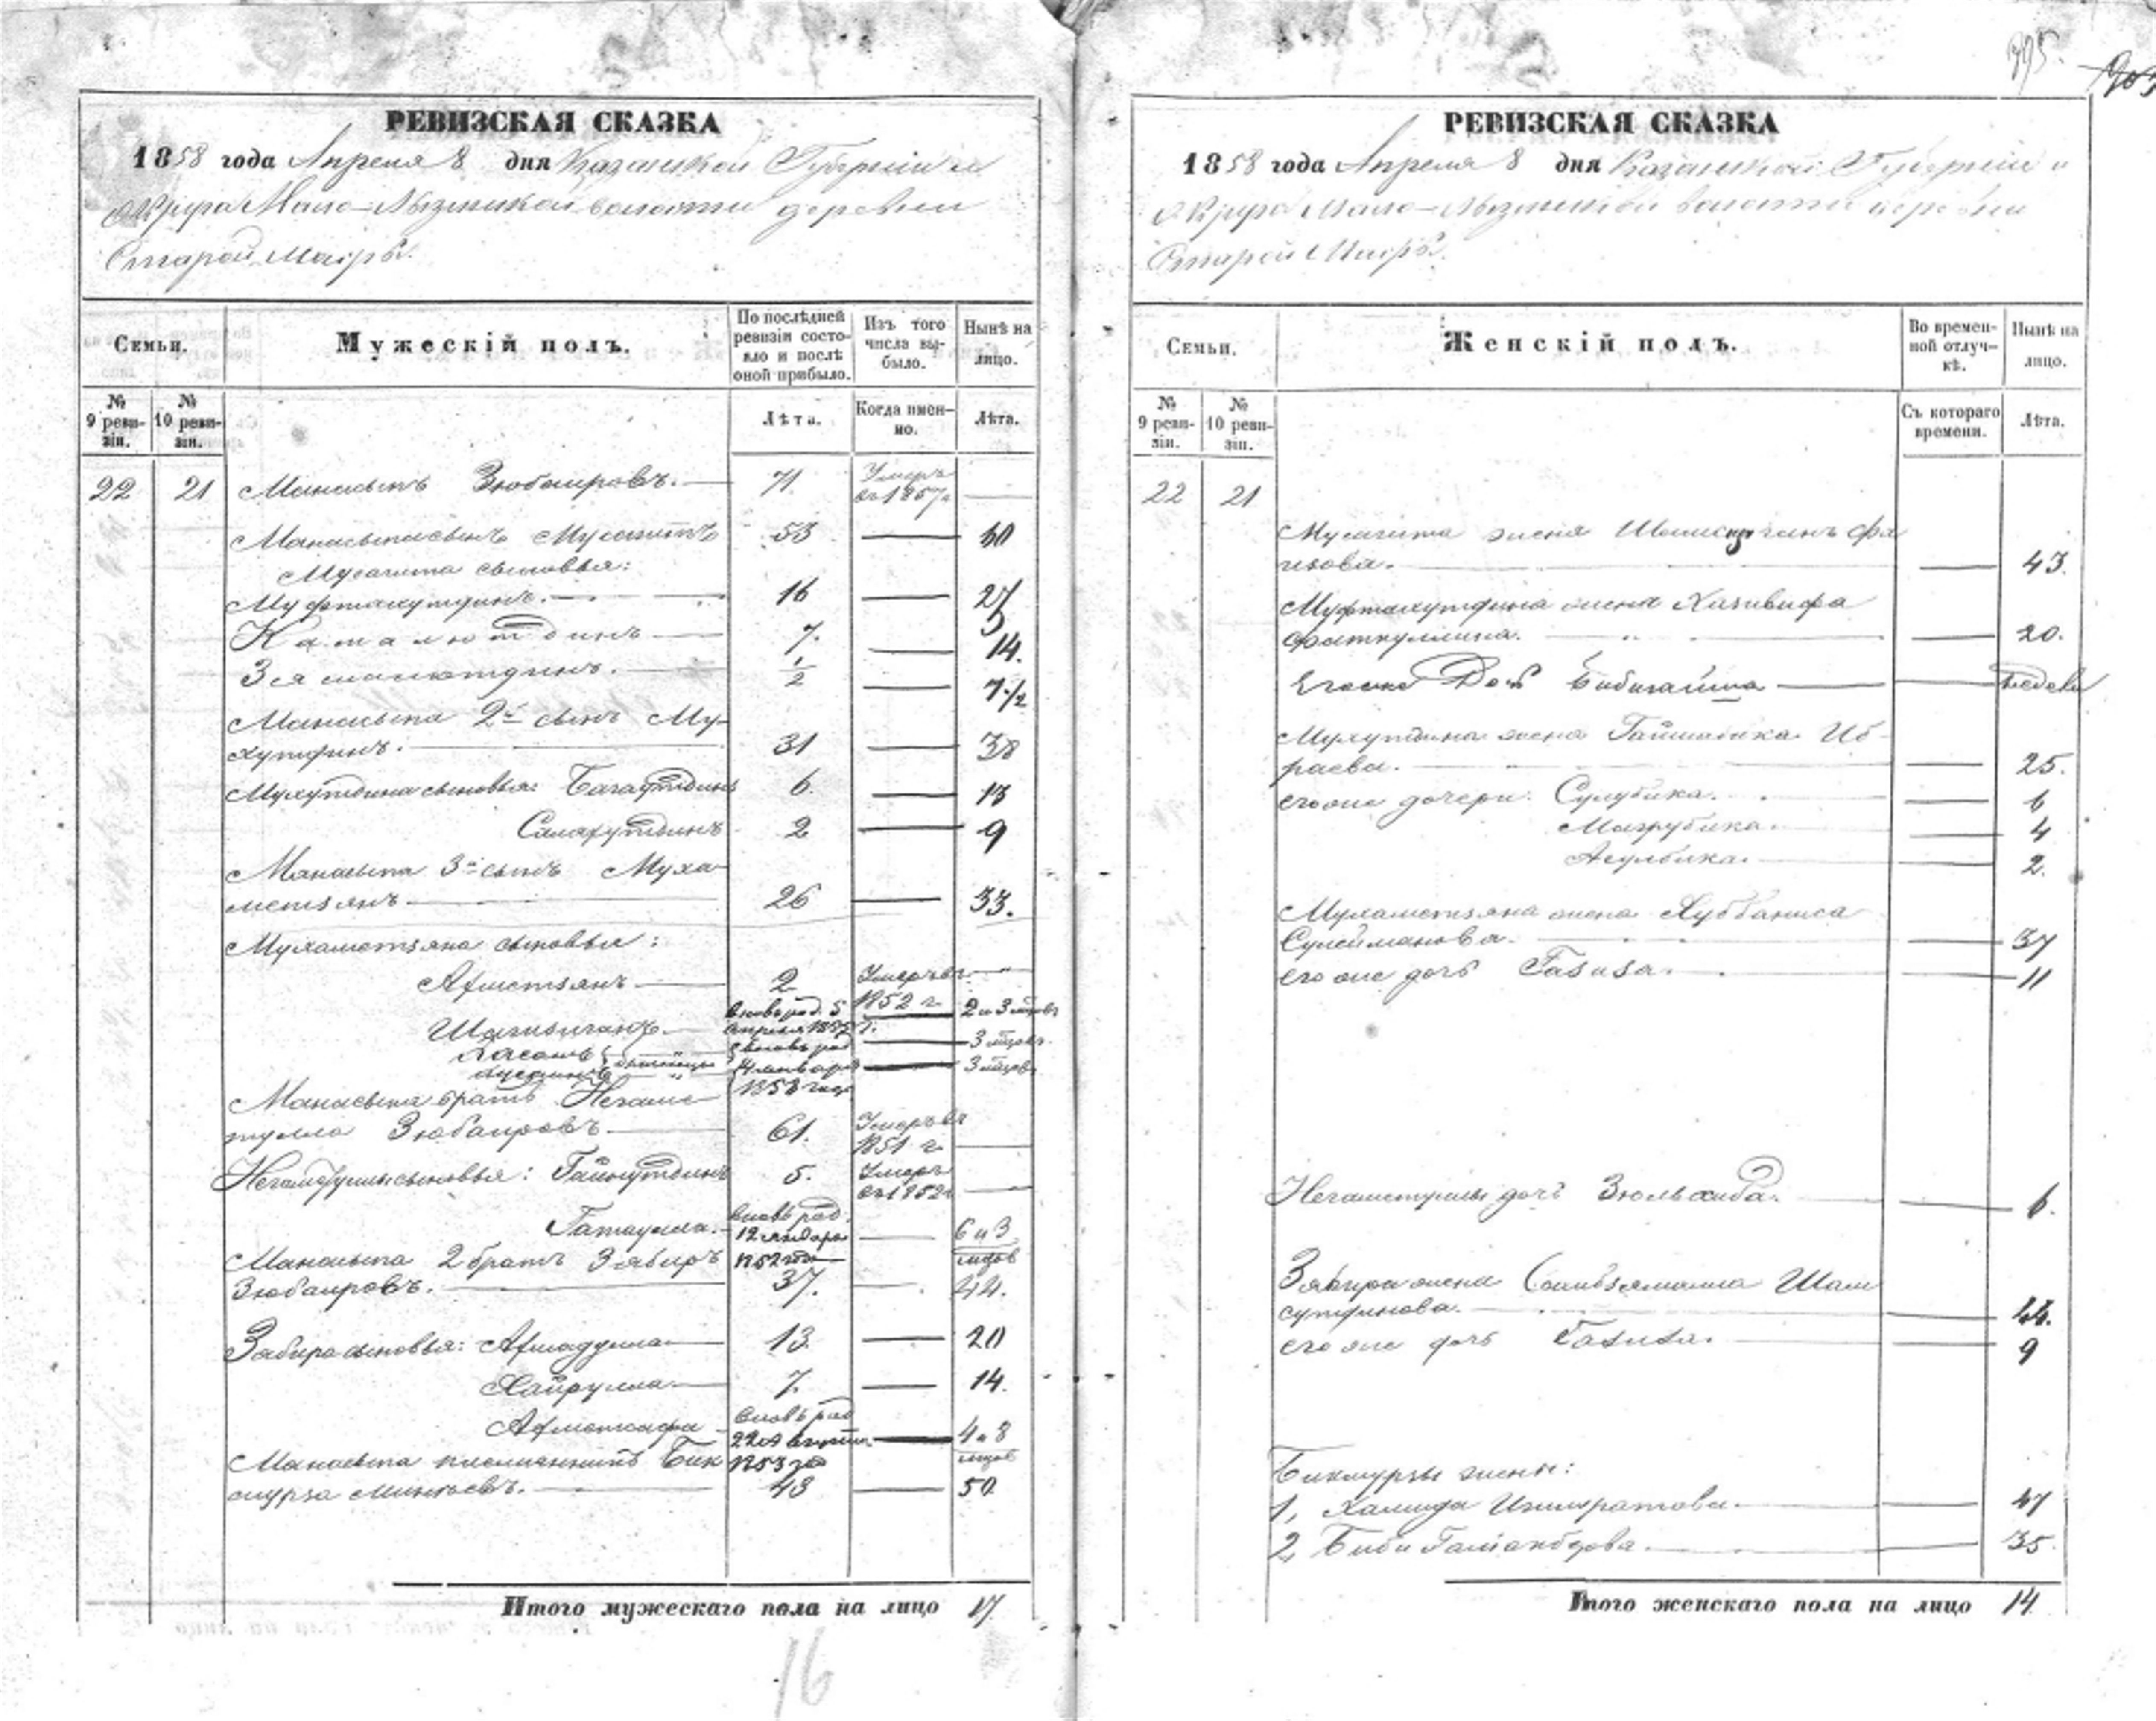 395.
РЕВИЗСКАЯ СКАЗКА
1858 года Апреля 8 дня Казанской Губернии и
Округа Мало-Лызинской волости деревни
Старой Масры.
Семьи.
Мужескій полъ.
По послѣдней ревизіи состояло и послѣ оной прибыло.
Изъ того числа выбыло.
Нынѣ на лицо.
№ 9 ревизіи.
№ 10 ревизіи.
Лѣта.
Когда именно.
Лѣта.
22 21 Манасыпъ Зюбаировъ. 71. Умеръ въ 1857г.
Манасыпа сынъ Мусагитъ 53 60
Мусагита сыновья:
Муфтахутдинъ. 16 27
Камалютдинъ 7. 14.
Зямалютдинъ. 1/2 7 1/2
Манасыпа 2й сынъ Му-
хутдинъ. 31 38
Мухутдина сыновья: Багаутдинъ 6. 13
Салахутдинъ 2 9
Манасыпа 3й сынъ Муха
метзянъ. 26 33.
Мухаметзяна сыновья:
Ахметзянъ 2 Умеръ въ 1852 г.
Шагизиганъ вновь род. 5 апреля 1857 г. 2 и 3 мѣсов
Хасанъ близнецы вновь род 3 мѣсов.
Хусаинъ 4 января 1858 года 3 мѣсов.
Манасыпа братъ Негаме
тулла Зюбаировъ. 61. Умеръ въ 1851 г.
Негаметуллы сыновья: Гайнутдинъ 5. Умеръ въ 1852г
Гатаулла. вновь род. 12 января 1852 года 6 и 3 мѣсов
Манасыпа 2 братъ Зябиръ
Зюбаировъ. 37. 44.
Забира сыновья: Ахмадулла 13. 20
Хайрулла 7. 14.
Ахметсафа вновь род 22 Августа 1853 го 4 и 8 мѣсов
Манасыпа племянникъ Бик
мурза Минѣевъ. 43 50
Итого мужескаго пола на лицо 17
16
РЕВИЗСКАЯ СКАЗКА
1858 года Апреля 8 дня Казанской Губерніи и
Округа Мало-Лызинской волости деревни
Старой Масры.
Семьи.
Женскій полъ.
Во временной отлучкѣ.
Нынѣ на лицо.
№ 9 ревизіи.
№ 10 ревизіи.
Съ котораго времени.
Лѣта.
22 21
Мусагита жена Фа
изова. 43.
Муфтахутдина жена Хазивифа
Фаткуллина. 20.
Его же Дочь Бибигайша Недели
Мухутдина жена Гайшабика Иб-
раева. 25.
его же дочери: Сулубика. 6
Магрубика. 4
Асулбика. 2.
Мухаметзяна жена Хуббаниса
Сулейманова. 37
его же дочь Газиза. 11
Негаметуллы дочь Зюльхаба. 6.
Зябира жена Шам
сутдинова. 44.
его же дочь Газиза. 9
Бикмурзы жены:
1, Халида Ишмратова. 47
2, Биби 35.
Итого женскаго пола на лицо 14